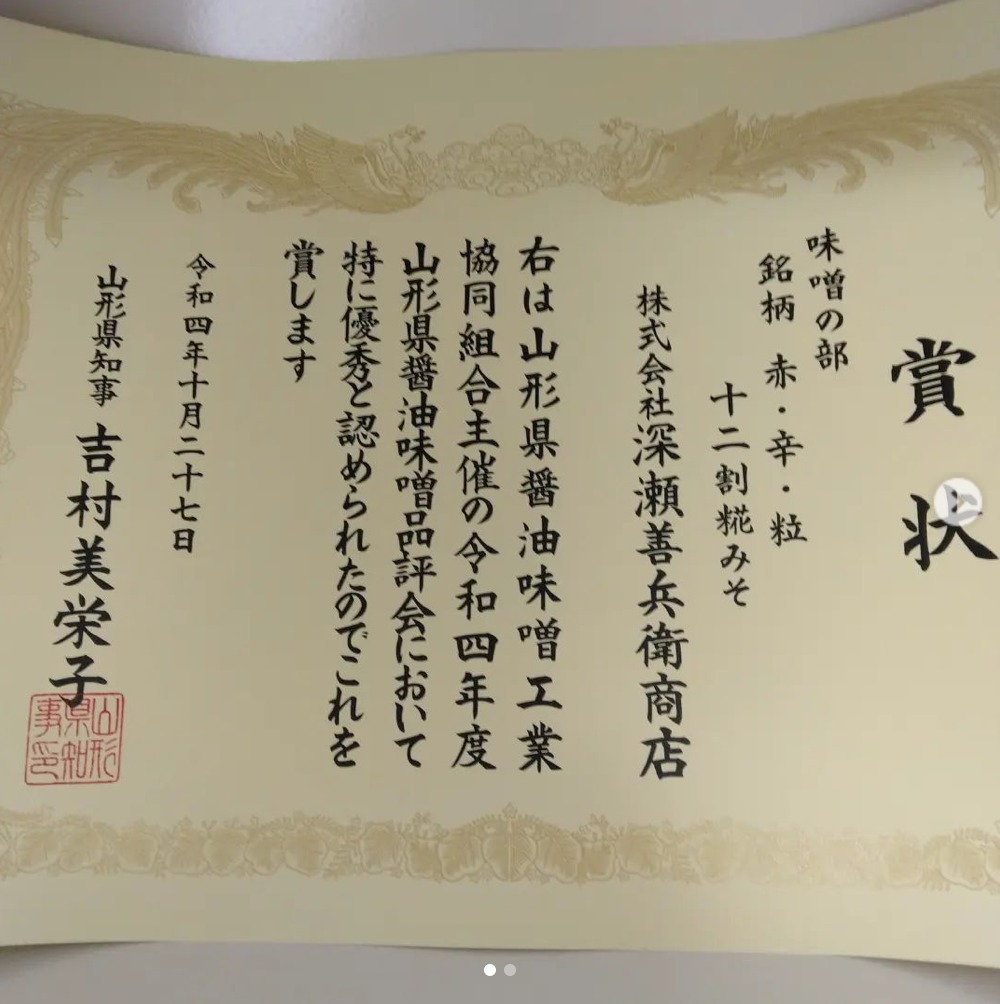 賞状
味噌の部
銘柄 赤・辛・粒
十二割糀みそ
株式会社深瀬善兵衛商店
右は山形県醤油味噌工業
協同組合主催の令和四年度
山形県醤油味噌品評会において
特に優秀と認められたのでこれを
賞します
令和四年十月二十七日
山形県知事 吉村美栄子
山形
県知
事印